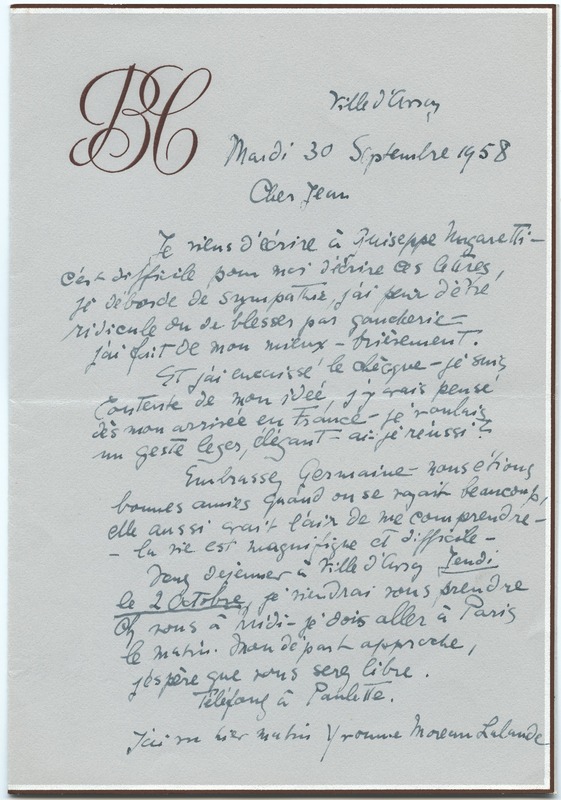 BC
Ville d'Avray
Mardi 30 Septembre 1958
Cher Jean
Je viens d'écrire à Guiseppe Mugaretti -
c'est difficile pour moi d'écrire ces lettres,
je déborde de sympathie, j'ai peur d'être
ridicule ou de blesser par gaucherie -
j'ai fait de mon mieux - brièvement.
Et j'ai encaissé le chèque - je suis
contente de mon idée, j'y avais pensé
dès mon arrivée en France - je voulais
un geste leger, élégant - ai-je réussi ?
Embrassez Germaine - nous étions
bonnes amies quand on se voyait beaucoup,
elle aussi avait l'air de me comprendre -
- la vie est magnifique et difficile -
Donc dejeuner à Ville d'Avray Jeudi
le 2 Octobre, je viendrai vous prendre
chez vous à Midi - je dois aller à Paris
le matin. Mon départ approche,
j'espère que vous serez libre.
Téléfonez à Paulette.
J'ai vu hier matin Yvonne Moreau Lalande